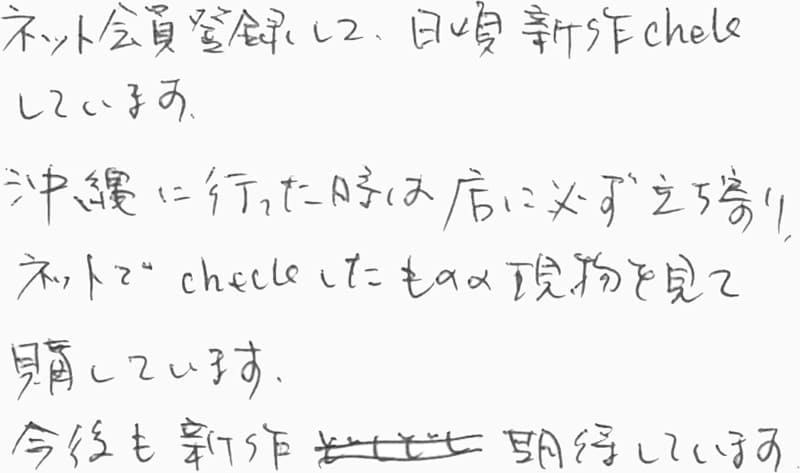 ネット会員登録して、日頃新作check
しています。
沖縄に行った時は店に必ず立ち寄り、
ネットでcheckしたものの現物を見て
購しています。
今後も新作期待しています